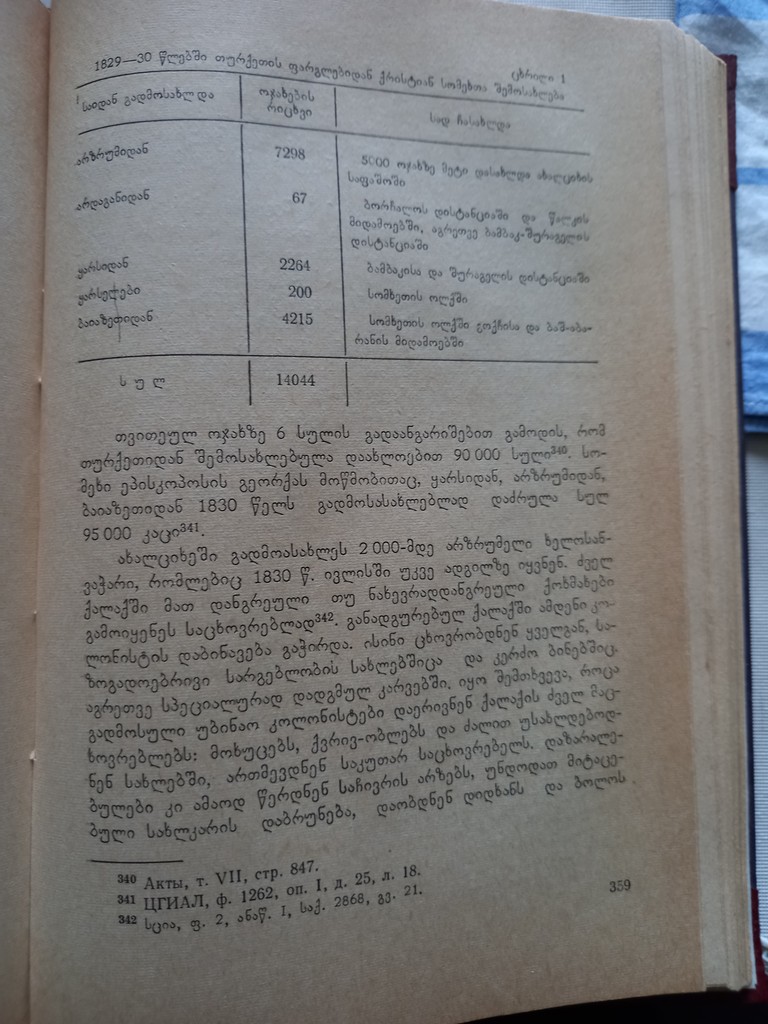 ცხრილი 1
1829—30 წლებში თურქეთის ფარგლებიდან ქრისტიან სომეხთა შემოსახლება
საიდან გადმოსახლდა ოჯახების რიცხვი სად ჩასახლდა
არზრუმიდან 7298 5000 ოჯახზე მეტი დასახლდა ახალციხის
საფაშოში
არდაგანიდან 67 ბორჩალოს დისტანციაში და წალკის
მიდამოებში, აგრეთვე ბამბაკ-შურაგელის
დისტანციაში
ყარსიდან 2264 ბამბაკისა და შურაგელის დისტანციაში
ყარსელები 200 სომხეთის ოლქში
ბაიაზეთიდან 4215 სომხეთის ოლქში გოქჩისა და ბაშ-აბა-
რანის მიდამოებში
სულ 14044
თვითეულ ოჯახზე 6 სულის გადაანგარიშებით გამოდის, რომ
თურქეთიდან შემოსახლებულა დაახლოებით 90 000 სული³⁴⁰. სო-
მეხი ეპისკოპოსის გეორქას მოწმობითაც, ყარსიდან, არზრუმიდან,
ბაიაზეთიდან 1830 წელს გადმოსასახლებლად დაძრულა სულ
95 000 კაცი³⁴¹.
ახალციხეში გადმოასახლეს 2 000-მდე არზრუმელი ხელოსან-
ვაჭარი, რომლებიც 1830 წ. ივლისში უკვე ადგილზე იყვნენ. ძველ
ქალაქში მათ დანგრეული თუ ნახევრადდანგრეული ქოხმახები
გამოიყენეს საცხოვრებლად³⁴². განადგურებულ ქალაქში ამდენი კო-
ლონისტის დაბინავება გაჭირდა. ისინი ცხოვრობდნენ ყველგან, სა-
ზოგადოებრივი სარგებლობის სახლებშიცა და კერძო ბინებშიც,
აგრეთვე სპეციალურად დადგმულ კარვებში. იყო შემთხვევა, როცა
გადმოსული უბინაო კოლონისტები დაერივნენ ქალაქის ძველ მაც-
ხოვრებლებს: მოხუცებს, ქვრივ-ობლებს და ძალით უსახლდებოდ-
ნენ სახლებში, ართმევდნენ საკუთარ საცხოვრებელს. დაზარალე-
ბულები კი ამაოდ წერდნენ საჩივრის არზებს, უნდოდათ მიტაცე-
ბული სახლკარის დაბრუნება, დაობდნენ დიდხანს და ბოლოს
³⁴⁰ Акты, т. VII, стр. 847.
³⁴¹ ЦГИАЛ, ф. 1262, оп. I, д. 25, л. 18.
³⁴² სცია, ფ. 2, ანაწ. I, საქ. 2868, გე. 21.
359